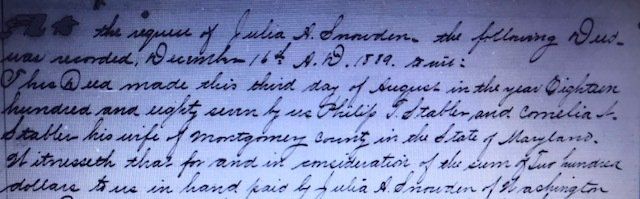 At the request of Julia A. Snowden the following Deed
was recorded, December 16th A.D. 1889. to wit:
This Deed made this third day of August in the year Eighteen
hundred and eighty seven by us Philip T. Stabler and Cornelia N.
Stabler his wife of Montgomery County in the State of Maryland.
Witnesseth that for and in consideration of the sum of Two hundred
dollars to us in hand paid by Julia A. Snowden of Washington